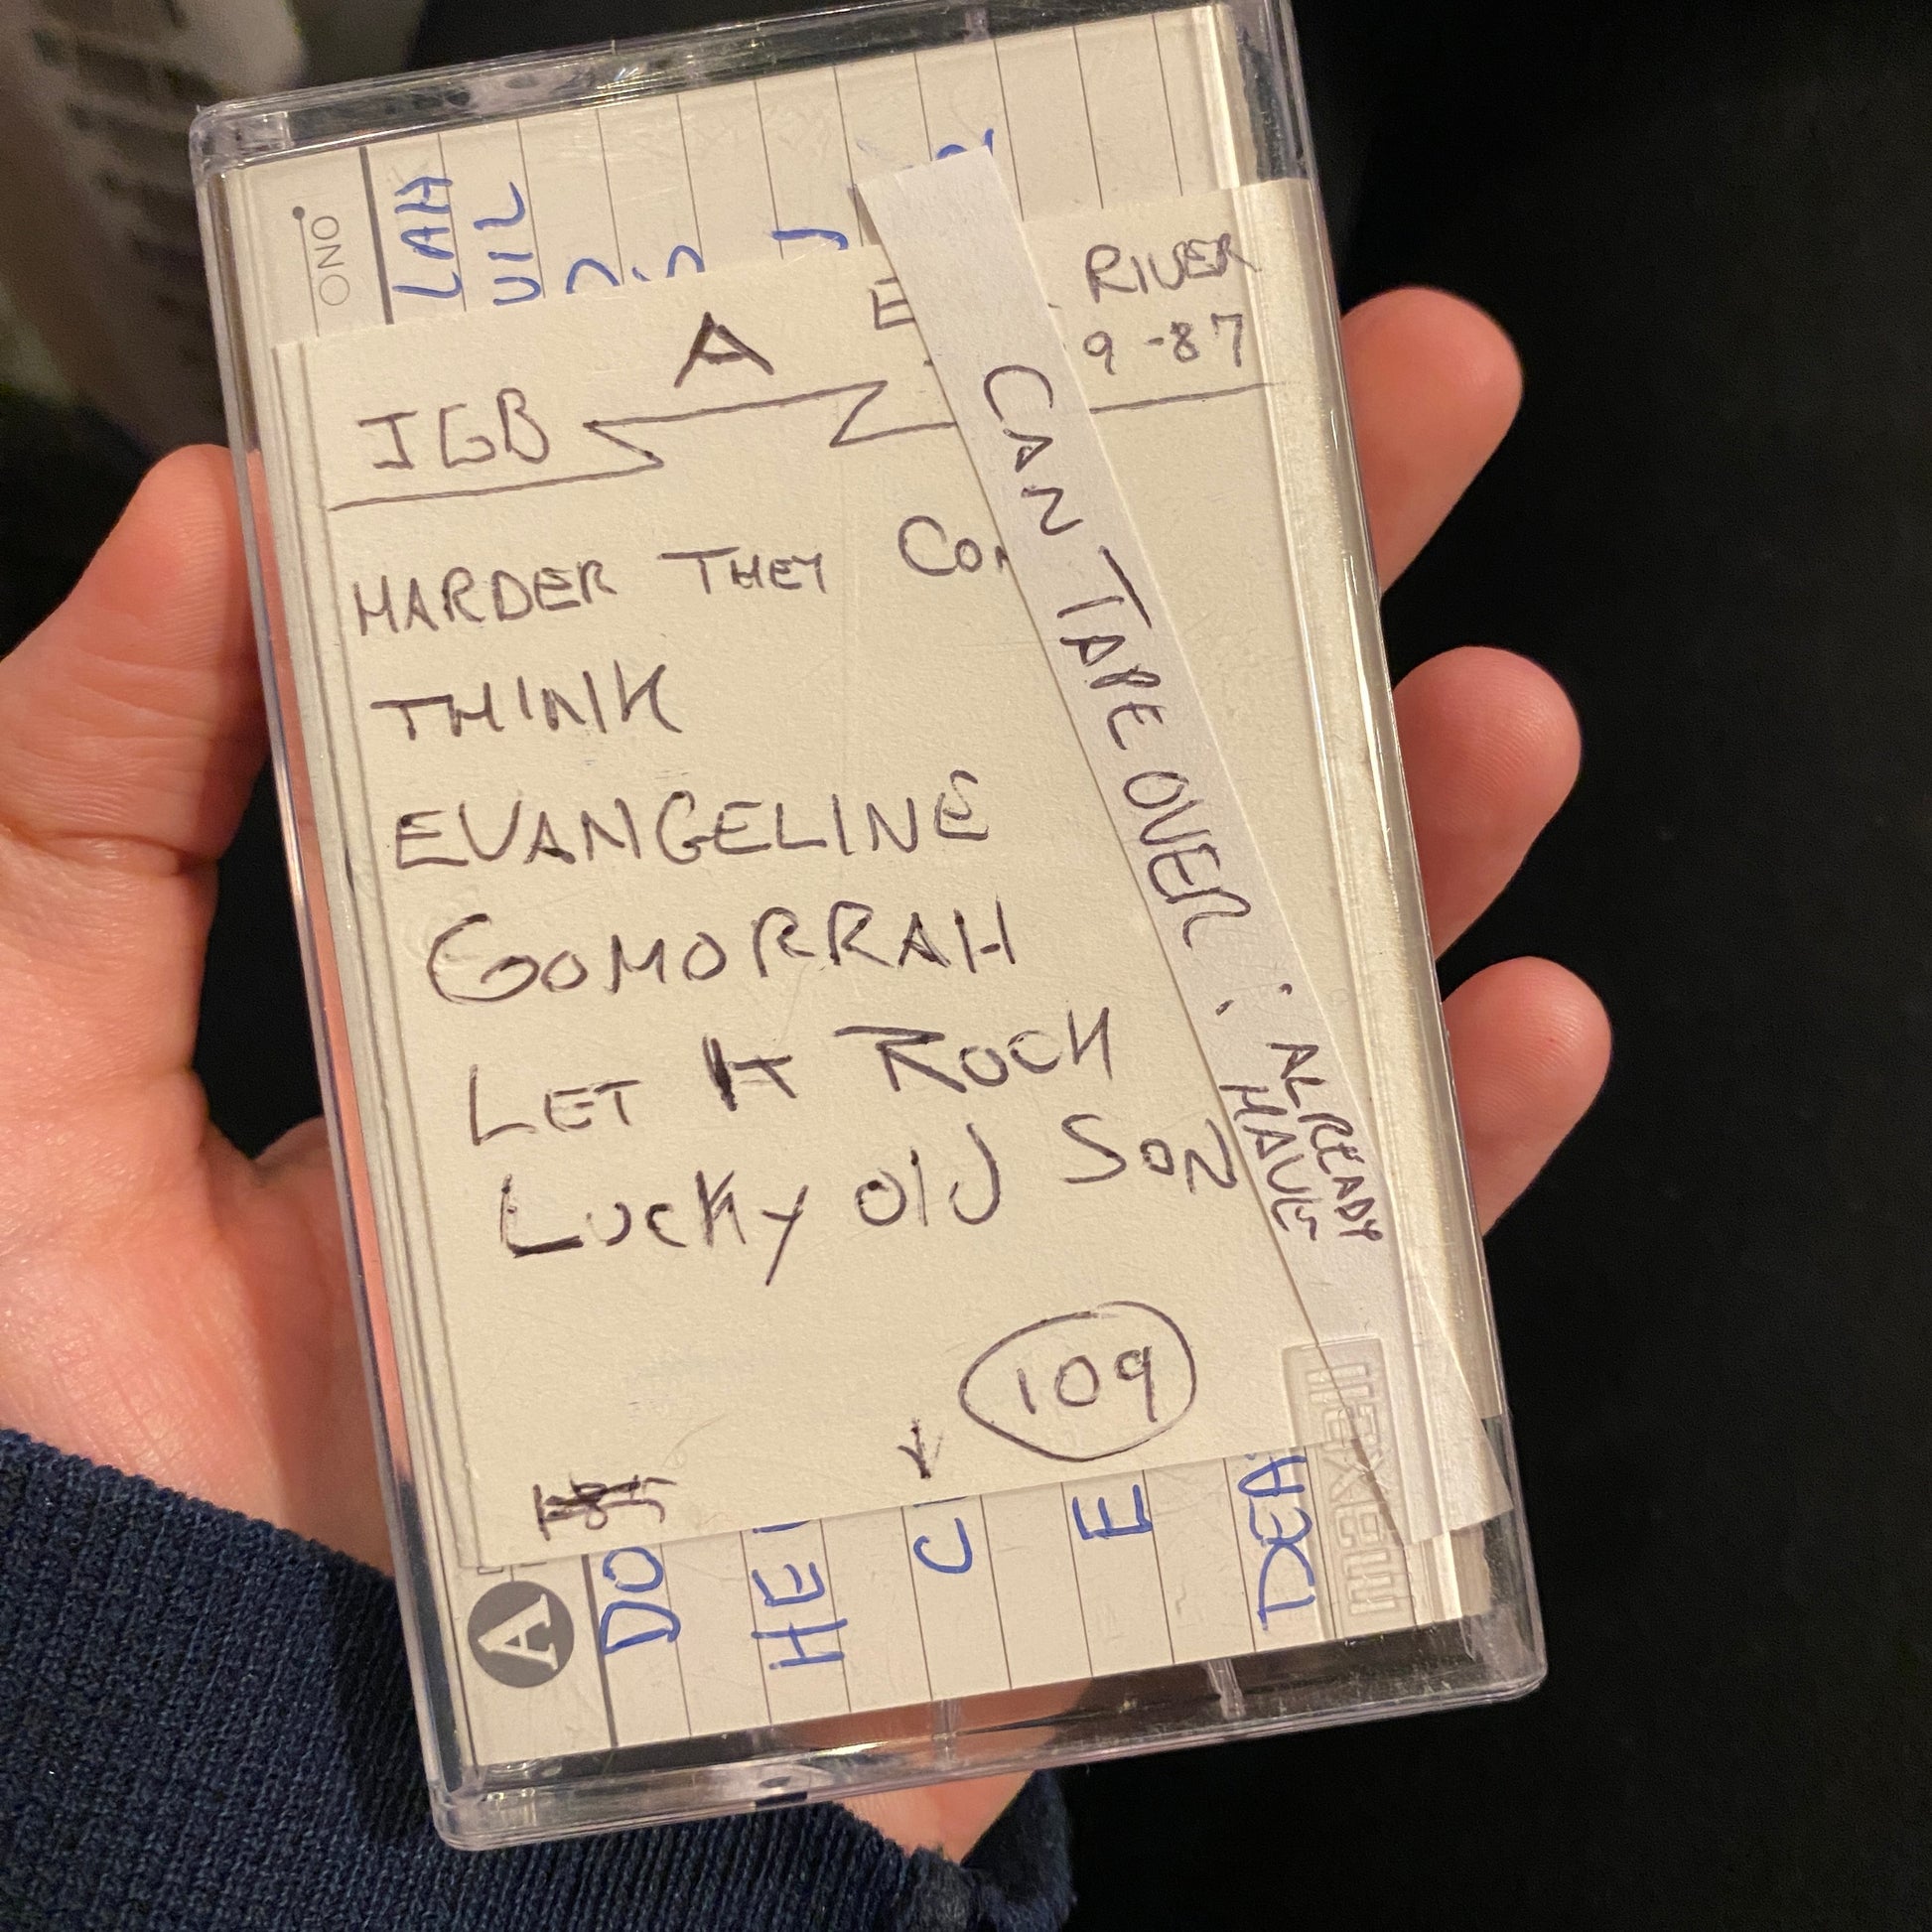 A
RIVER
9-87
JGB
HARDER THEY
THINK
EVANGELINE
GOMORRAH
LET IT ROCK
LUCKY OlD SON
109
CAN TAPE OVER : ALREADY
HAVE
LAH
VIL
DO
HE
C
E
DEA
A
maxell